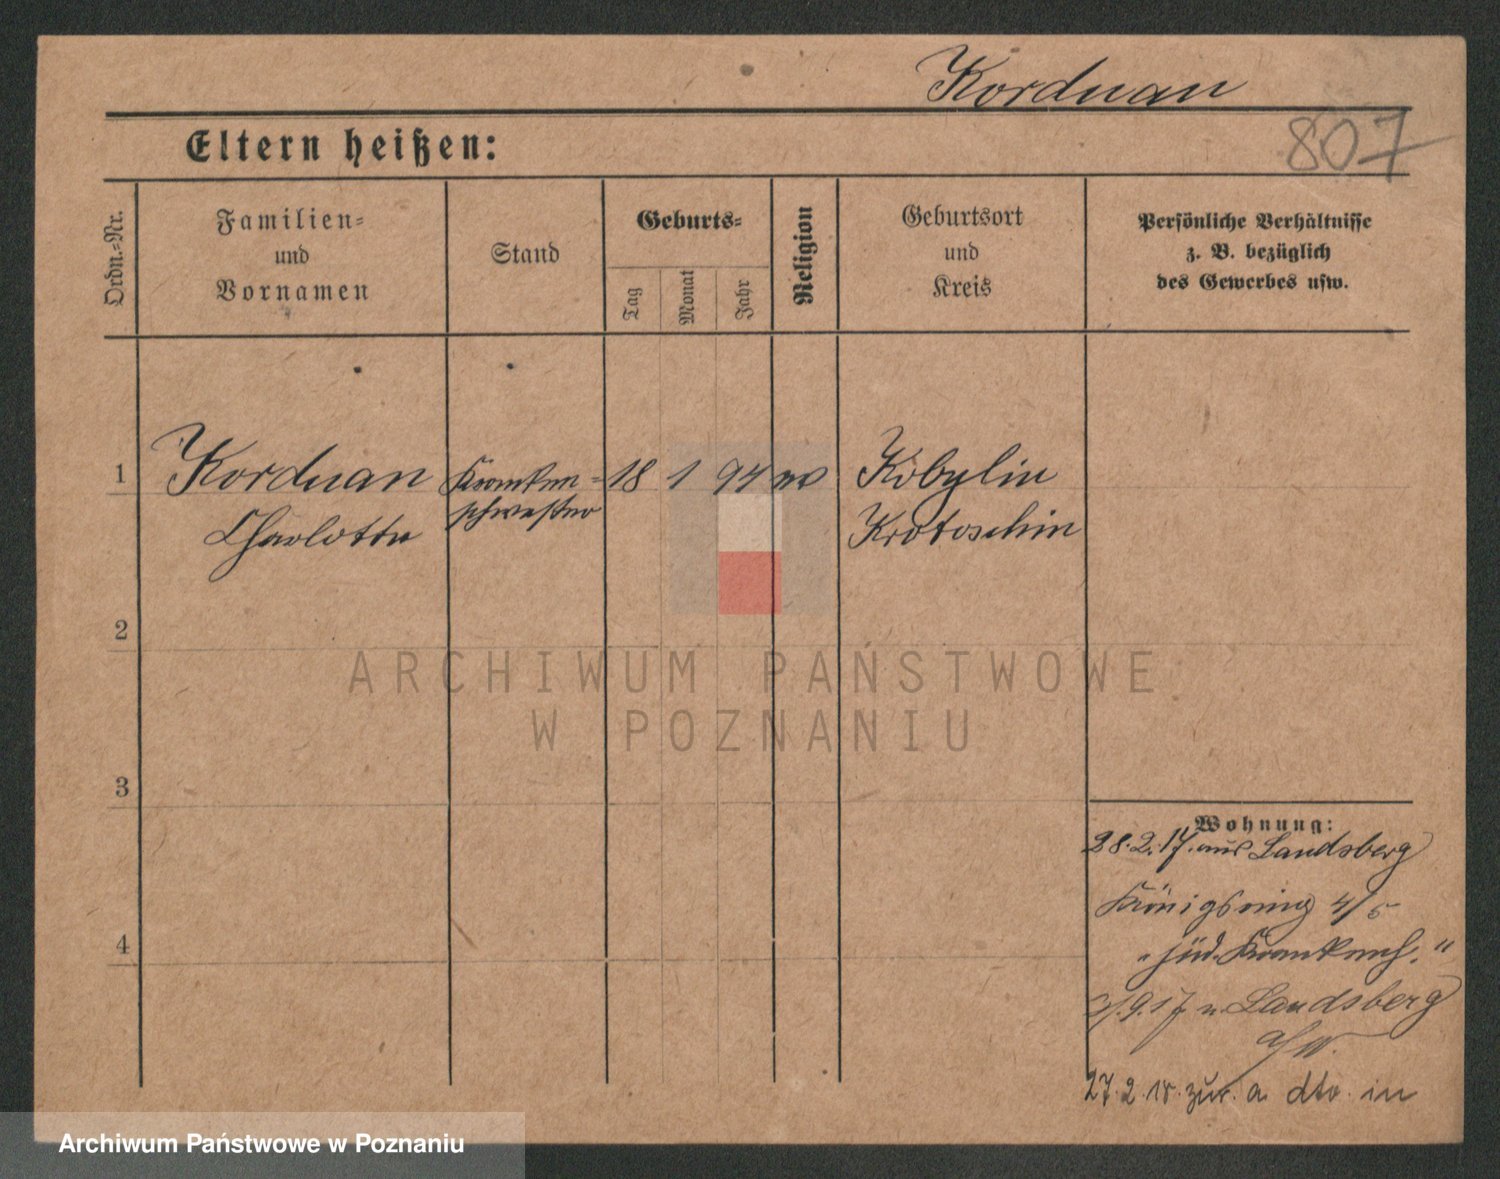 Korduan
807
Eltern heißen:
Ordn.-Nr.
Familien-
und
Vornamen
Stand
Geburts-
Tag
Monat
Jahr
Religion
Geburtsort
und
Kreis
Persönliche Verhältnisse
z. B. bezüglich
des Gewerbes usw.
1 Korduan Kranken- 18 1 94 Kobylin
Charlotte schwester Krotoschin
2
3
4
Wohnung:
28.2.17. aus Landsberg
Königsring 4/5
"jüd. Krankenh."
9.17 n. Landsberg
a/W.
27.2.18. zur. a. dto. in
ARCHIWUM PAŃSTWOWE
W POZNANIU
Archiwum Państwowe w Poznaniu